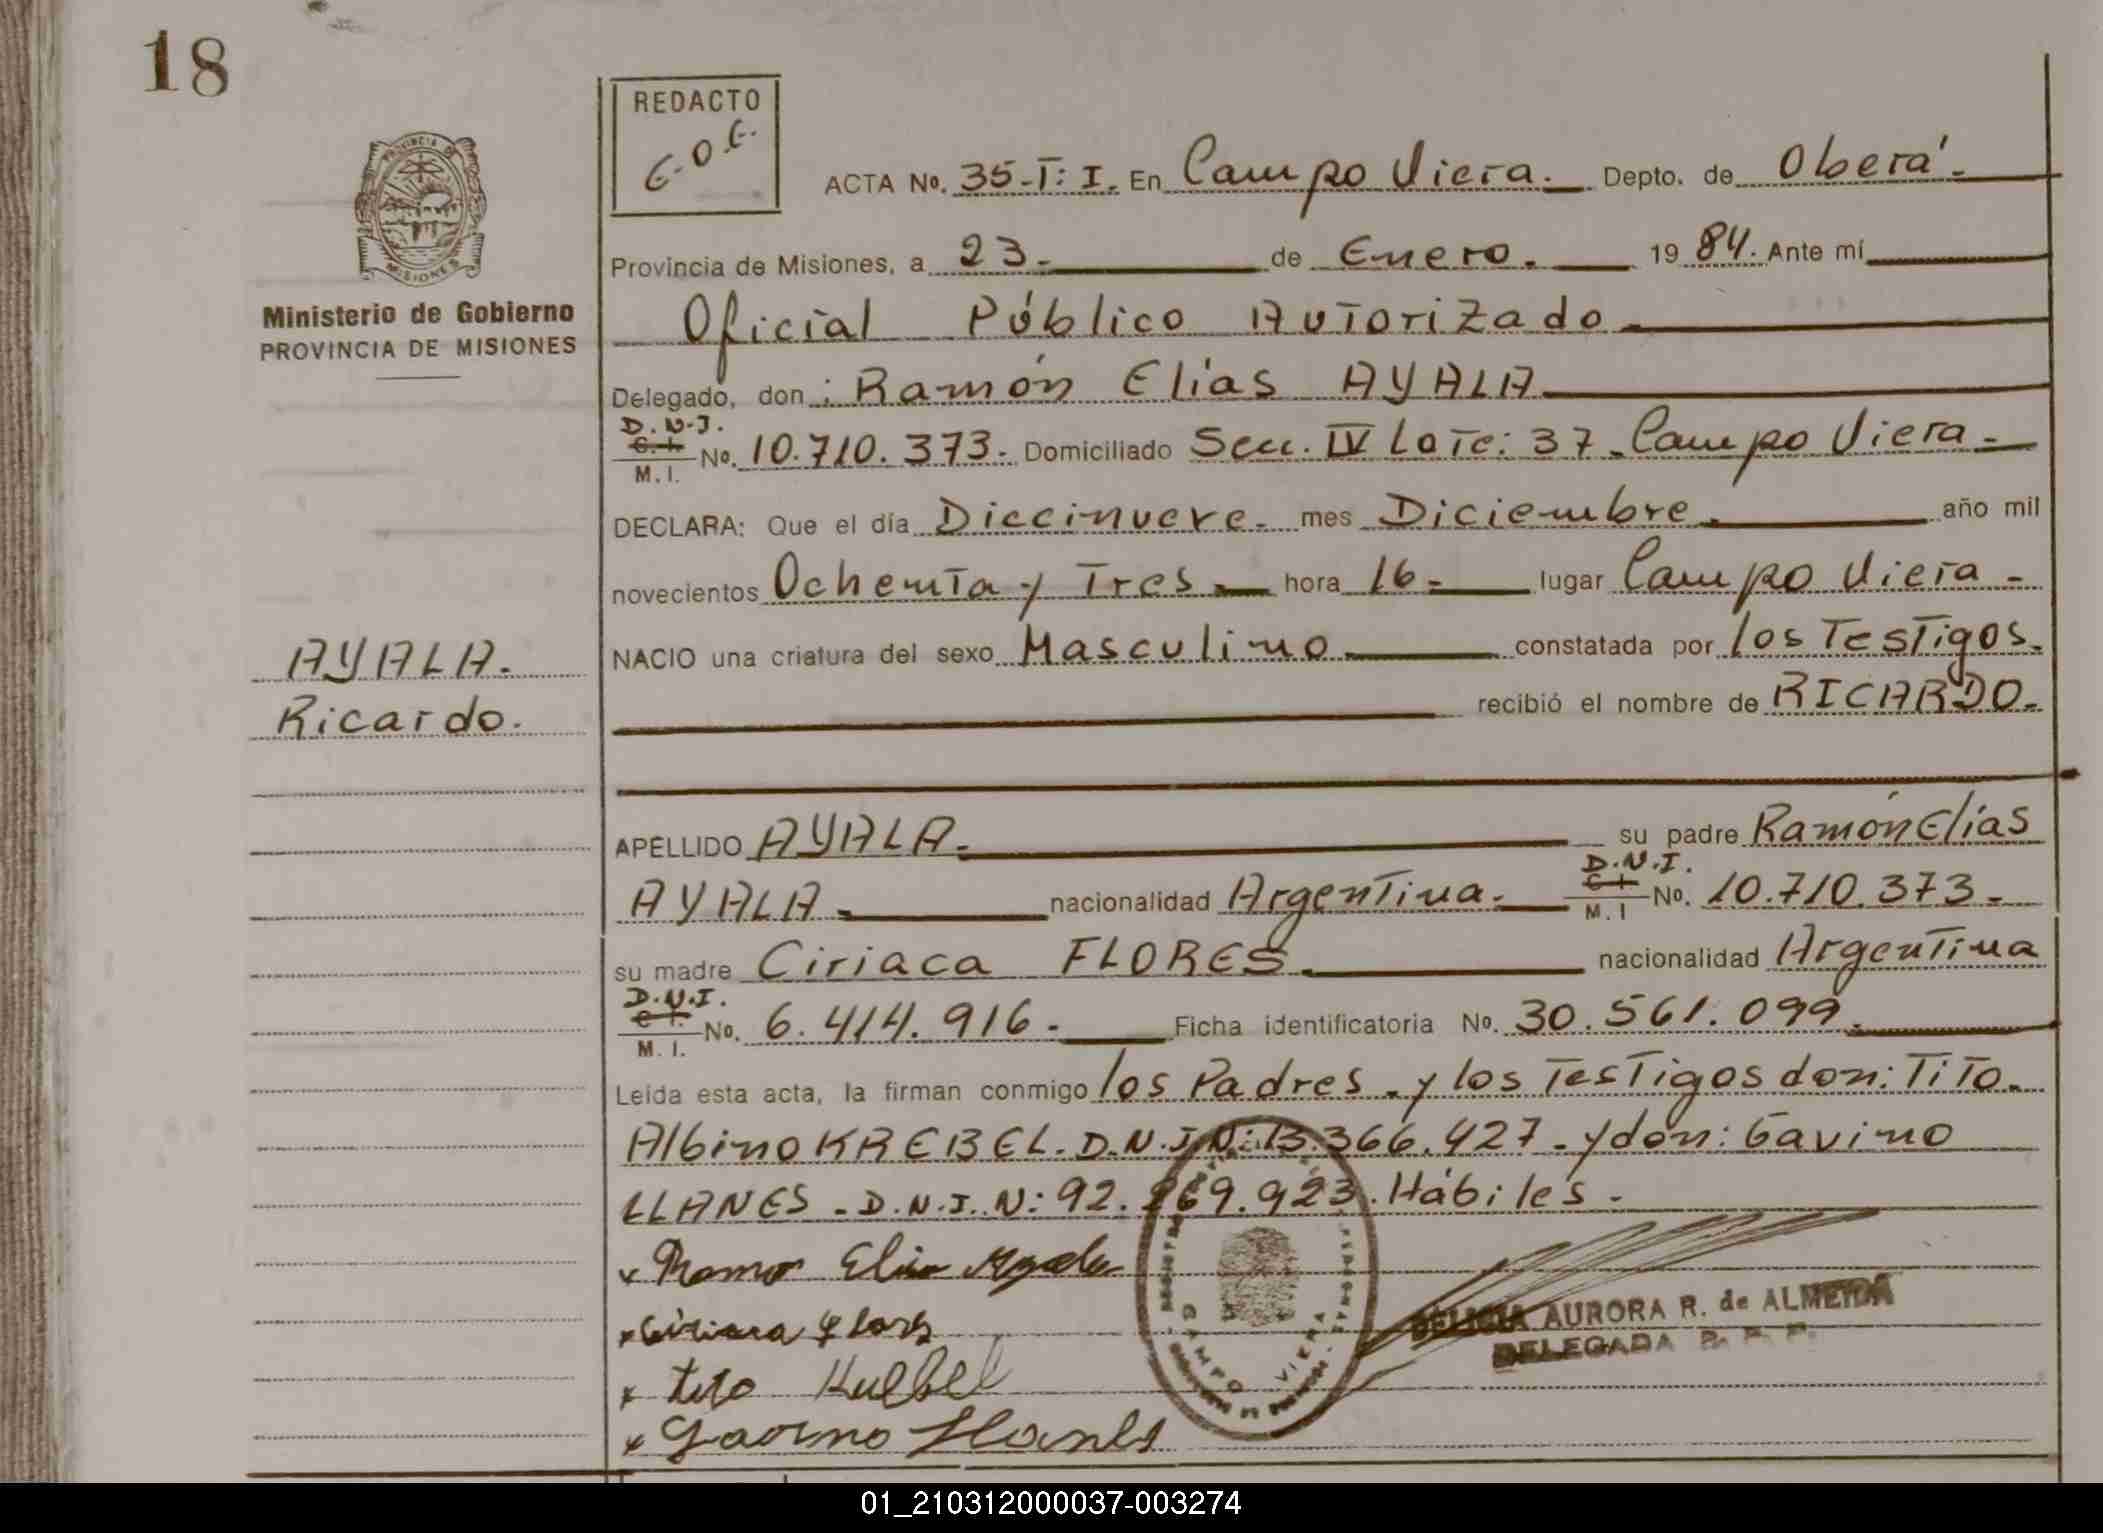 18
REDACTO
PROVINCIA DE
MISIONES
ACTA No. 35-T: I. En Campo Viera. Depto. de Oberá.
Provincia de Misiones, a 23. de Enero. 1984. Ante mí
Oficial Público Autorizado
Ministerio de Gobierno
PROVINCIA DE MISIONES
Delegado, don: Ramón Elías AYALA
D.N.I.
C. I. No. 10.710.373. Domiciliado Secc. IV Lote: 37. Campo Viera.
M. I.
DECLARA: Que el día Diecinueve. mes Diciembre. año mil
novecientos Ochenta y Tres. hora 16. lugar Campo Viera.
NACIO una criatura del sexo Masculino constatada por los Testigos.
AYALA.
Ricardo.
recibió el nombre de RICARDO.
APELLIDO AYALA. su padre Ramón Elías
D.N.I.
AYALA. nacionalidad Argentina. C I No. 10.710.373.
M. I
su madre Ciriaca FLORES. nacionalidad Argentina
D.N.I.
C I. No. 6.414.916. Ficha identificatoria No. 30.561.099.
M. I.
Leída esta acta, la firman conmigo los Padres. y los Testigos don: Tito.
Albino KREBEL. D.N.I N: 13.366.427. y don: Gavino
LLANES. D.N.I. N: 92.269.923. Hábiles.
Ramon Elias Ayala
Ciriaca Flores
Tito Krebel
Gavino Llanes
CAMPO VIERA
DELICIA AURORA R. de ALMEIDA
DELEGADA R. P. P.
01_210312000037-003274